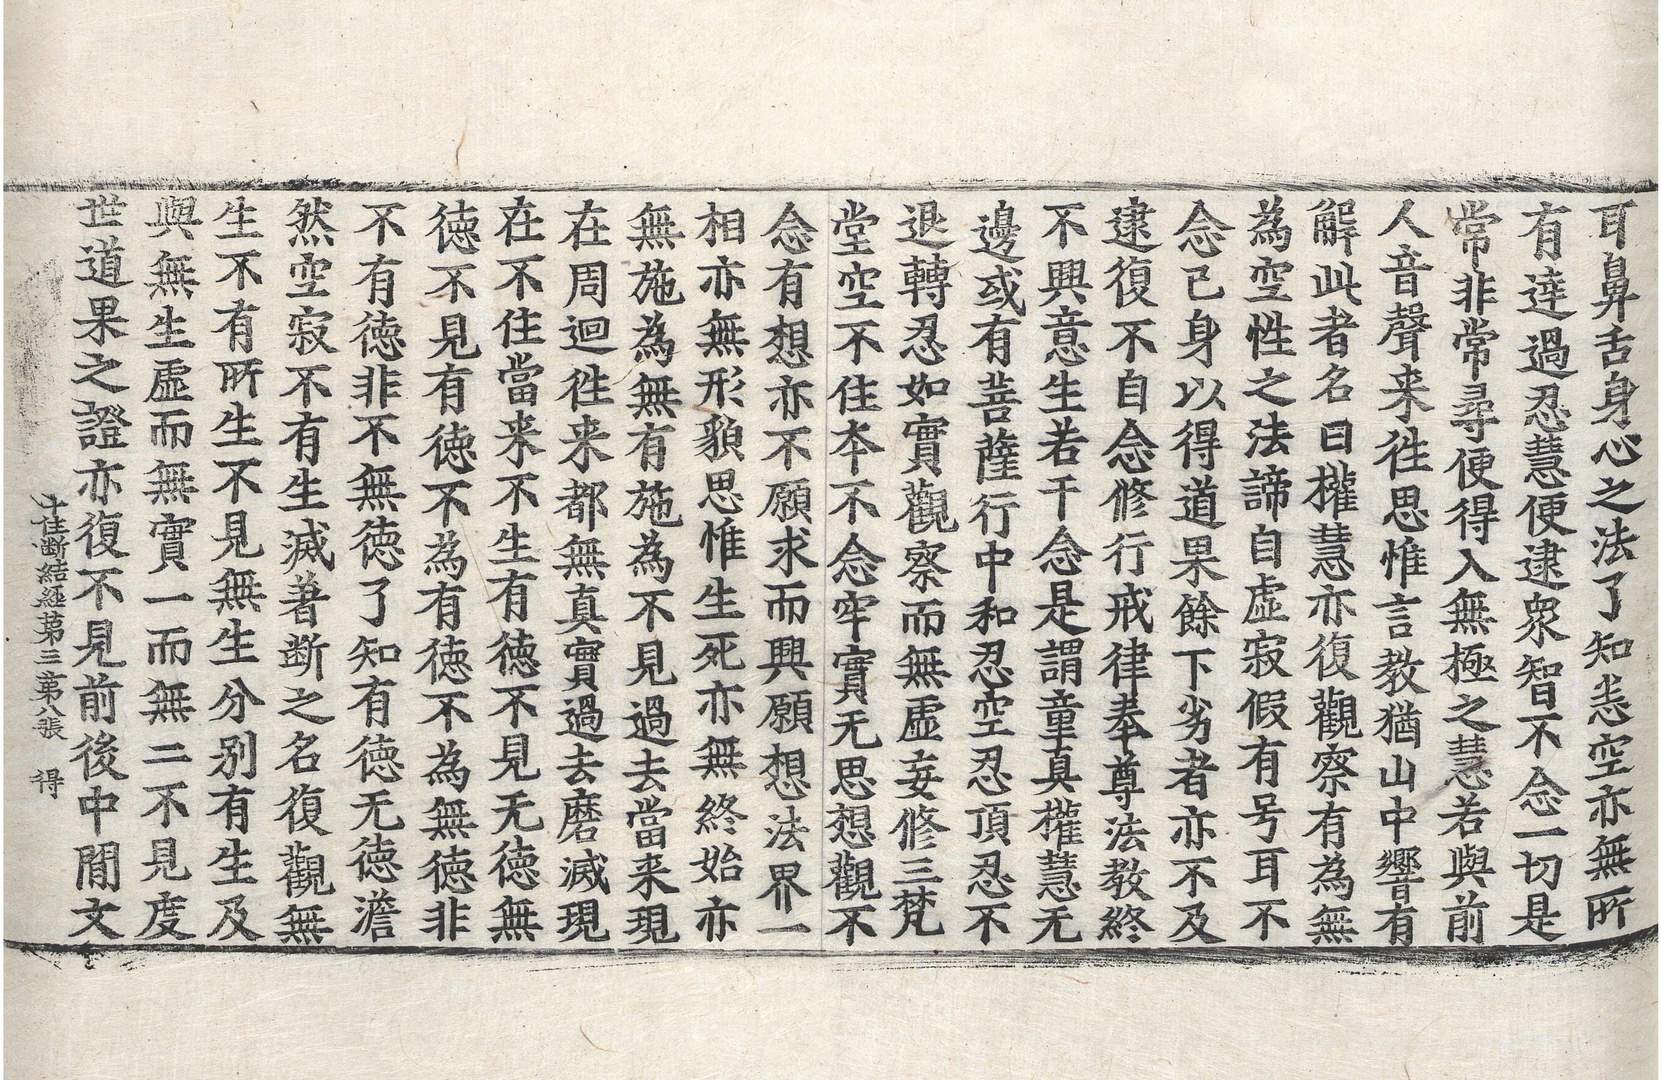 耳鼻舌身心之法了知恙空亦無所
有逹過忍慧便逮衆智不念一切是
常非常尋便得入無極之慧若與前
人音聲来徃思惟言教猶山中響有
解此者名曰權慧亦復觀察有為無
為空性之法諦自虛寂假有号耳不
念已身以得道果餘下劣者亦不及
逮復不自念修行戒律奉尊法教終
不興意生若干念是謂童真權慧无
邊或有菩薩行中和忍空忍頂忍不
退轉忍如實觀察而無虛妄修三梵
堂空不住夲不念牢實无思想觀不
念有想亦不願求而興願想法界一
相亦無形貌思惟生死亦無終始亦
無施為無有施為不見過去當来現
在周迴徃来都無真實過去磨滅現
在不住當来不生有德不見无德無
德不見有德不為有德不為無德非
不有德非不無德了知有德无德澹
然空寂不有生滅著断之名復觀無
生不有所生不見無生分別有生及
與無生虛而無實一而無二不見度
世道果之證亦復不見前後中間文
十住断結経苐三苐八張 得